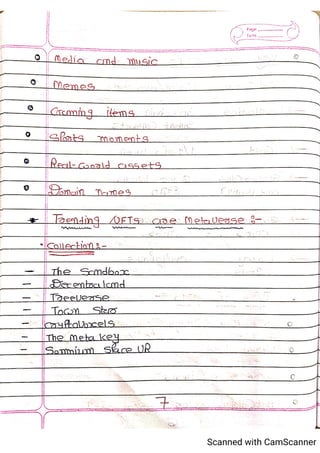 Page
Date
Media and music
Memes
Gaming items
Sports moments
Real-World assets
Domain names
* Trending NFTs are Metaverse :-
• Collection :-
- The Sandbox
- Decentraland
- Treeverse
- Town Star
- CryptoVoxels
- The meta key
- Somnium Space VR
7
Scanned with CamScanner